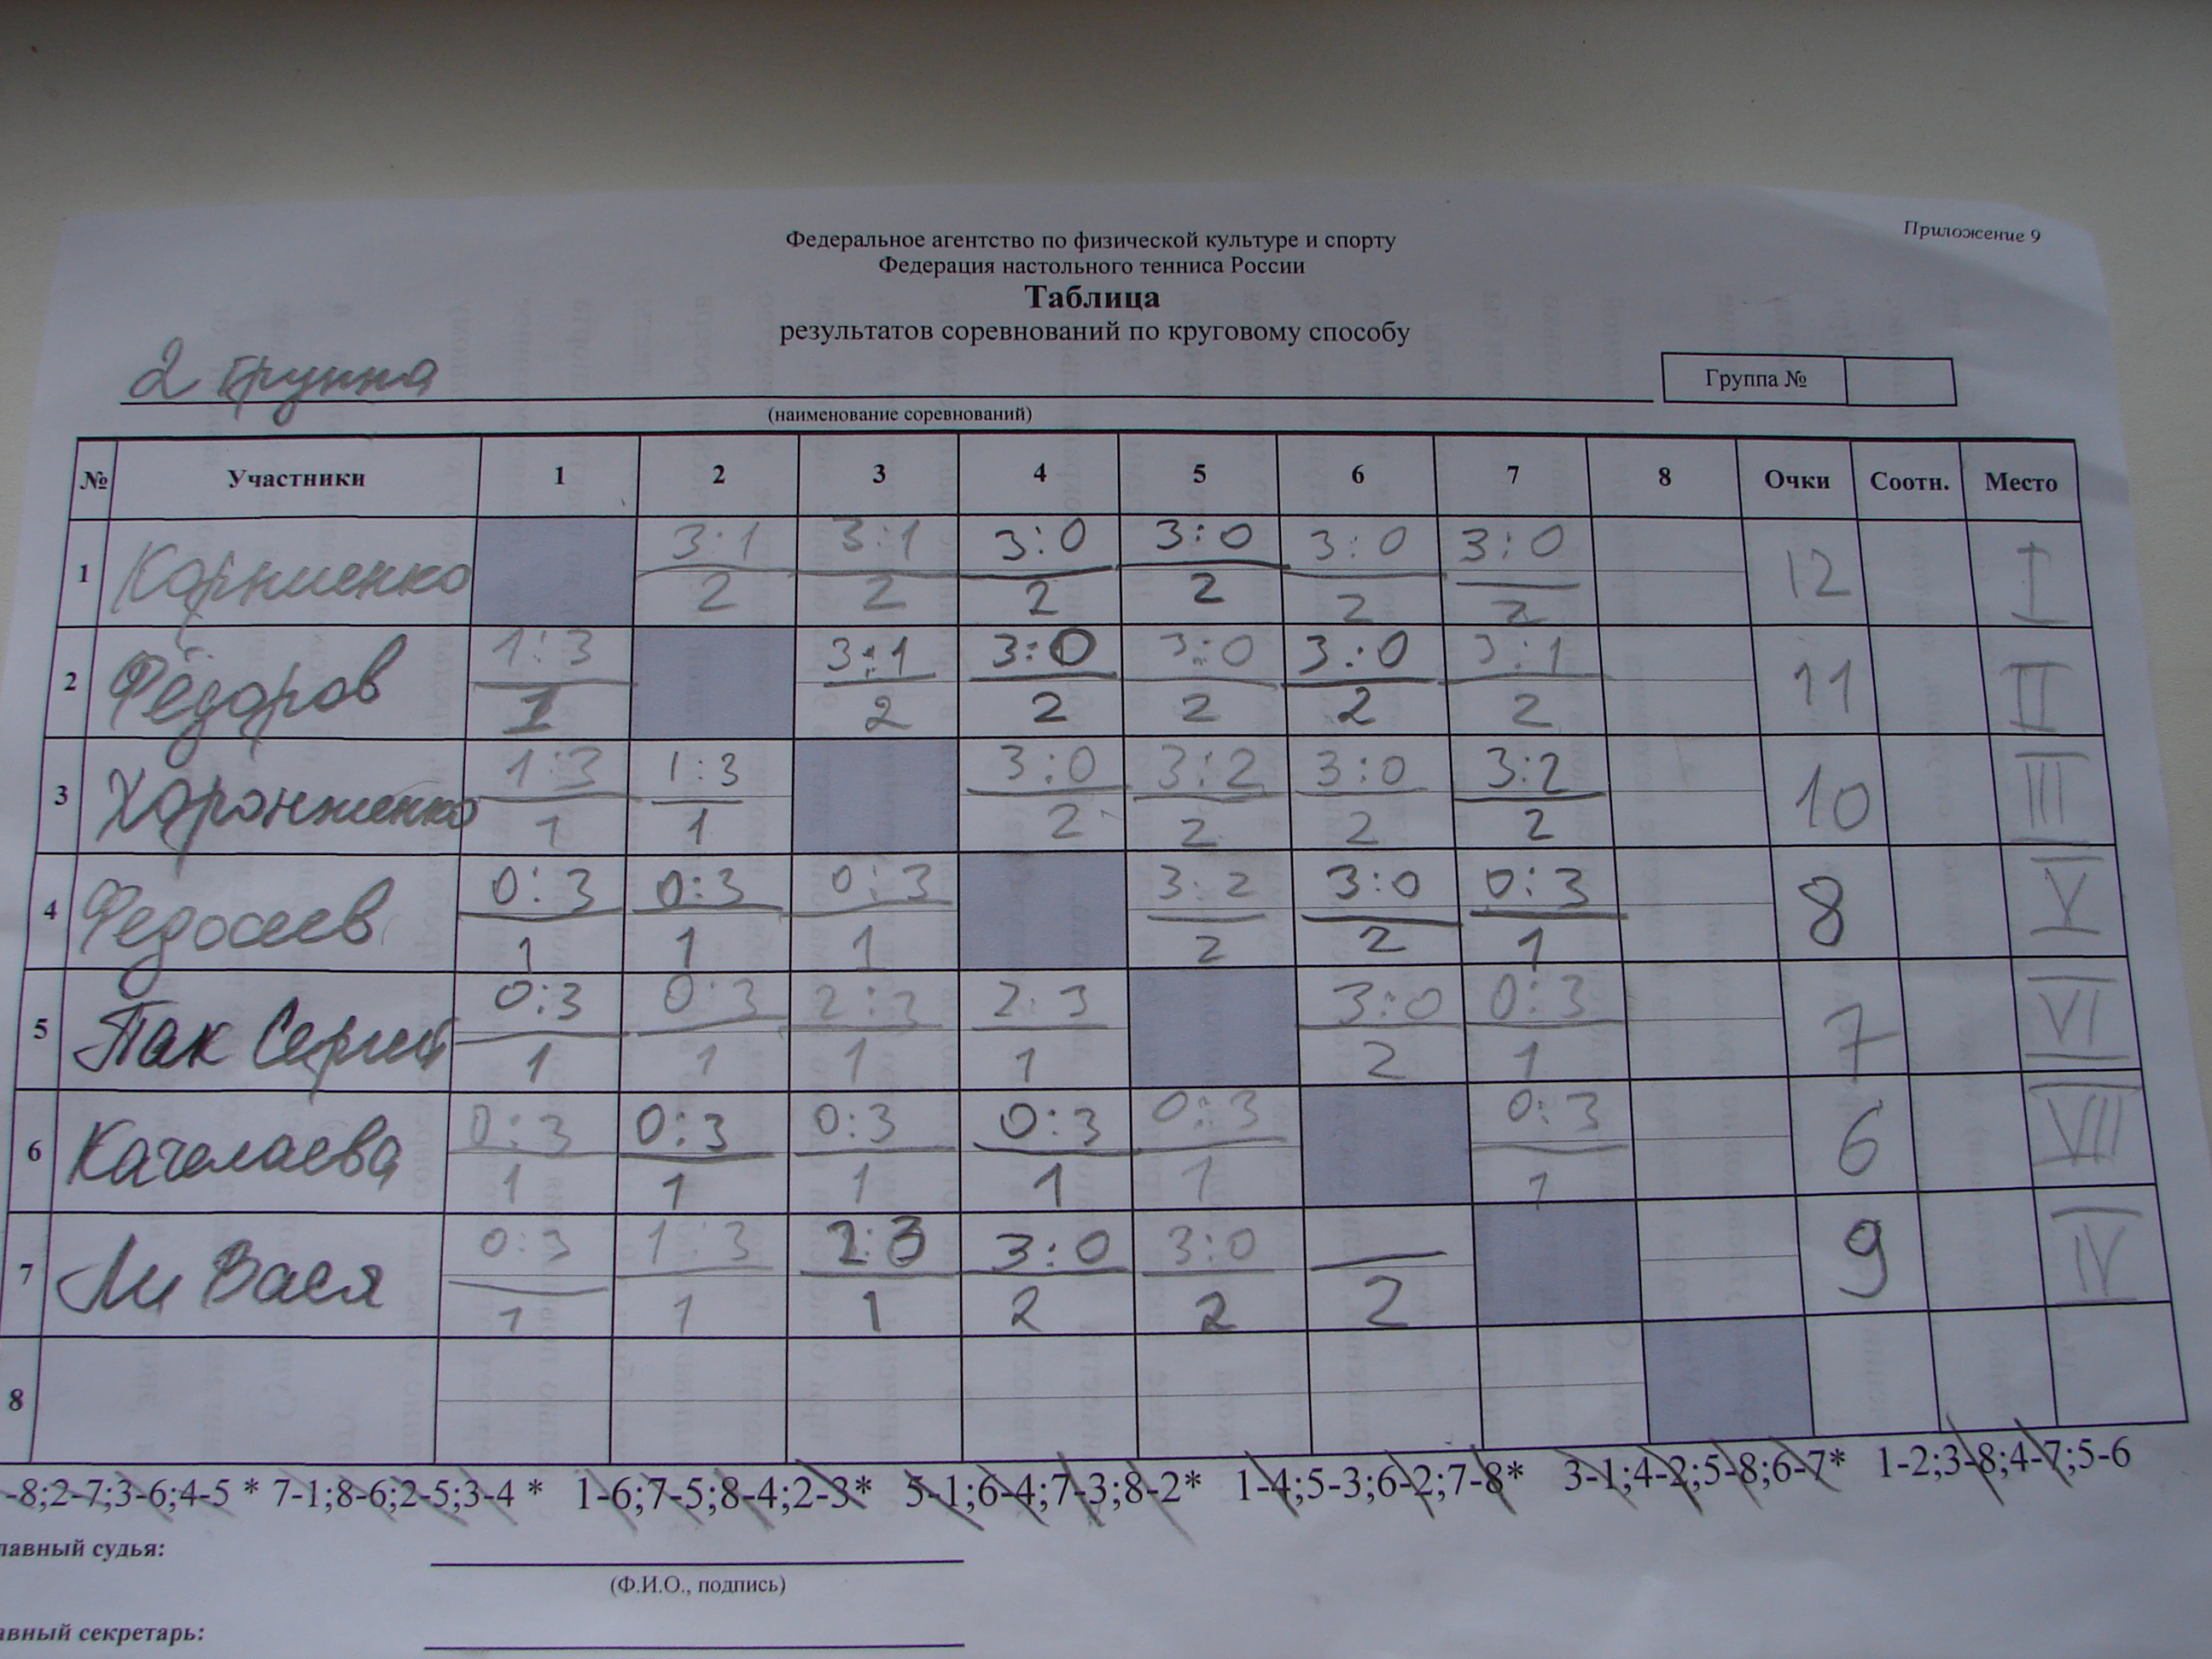 Приложение 9
Федеральное агентство по физической культуре и спорту
Федерация настольного тенниса России
Таблица
результатов соревнований по круговому способу
2 группа
Группа №
(наименование соревнований)
№ Участники 1 2 3 4 5 6 7 8 Очки Соотн. Место
1 Корниенко 3:1 3:1 3:0 3:0 3:0 3:0 12 I
2 2 2 2 2 2
2 Фёдоров 1:3 3:1 3:0 3:0 3:0 3:1 11 II
1 2 2 2 2 2
3 Хоронженко 1:3 1:3 3:0 3:2 3:0 3:2 10 III
1 1 2 2 2 2
4 Федосеев 0:3 0:3 0:3 3:2 3:0 0:3 8 V
1 1 1 2 2 1
5 Пак Сергей 0:3 0:3 2:3 2:3 3:0 0:3 7 VI
1 1 1 1 2 1
6 Качелаева 0:3 0:3 0:3 0:3 0:3 0:3 6 VII
1 1 1 1 1 1
7 Ли Вася 0:3 1:3 2:3 3:0 3:0 — 9 IV
1 1 1 2 2 2
8
-8;2-7;3-6;4-5 * 7-1;8-6;2-5;3-4 * 1-6;7-5;8-4;2-3* 5-1;6-4;7-3;8-2* 1-4;5-3;6-2;7-8* 3-1;4-2;5-8;6-7* 1-2;3-8;4-7;5-6
лавный судья:
(Ф.И.О., подпись)
авный секретарь: